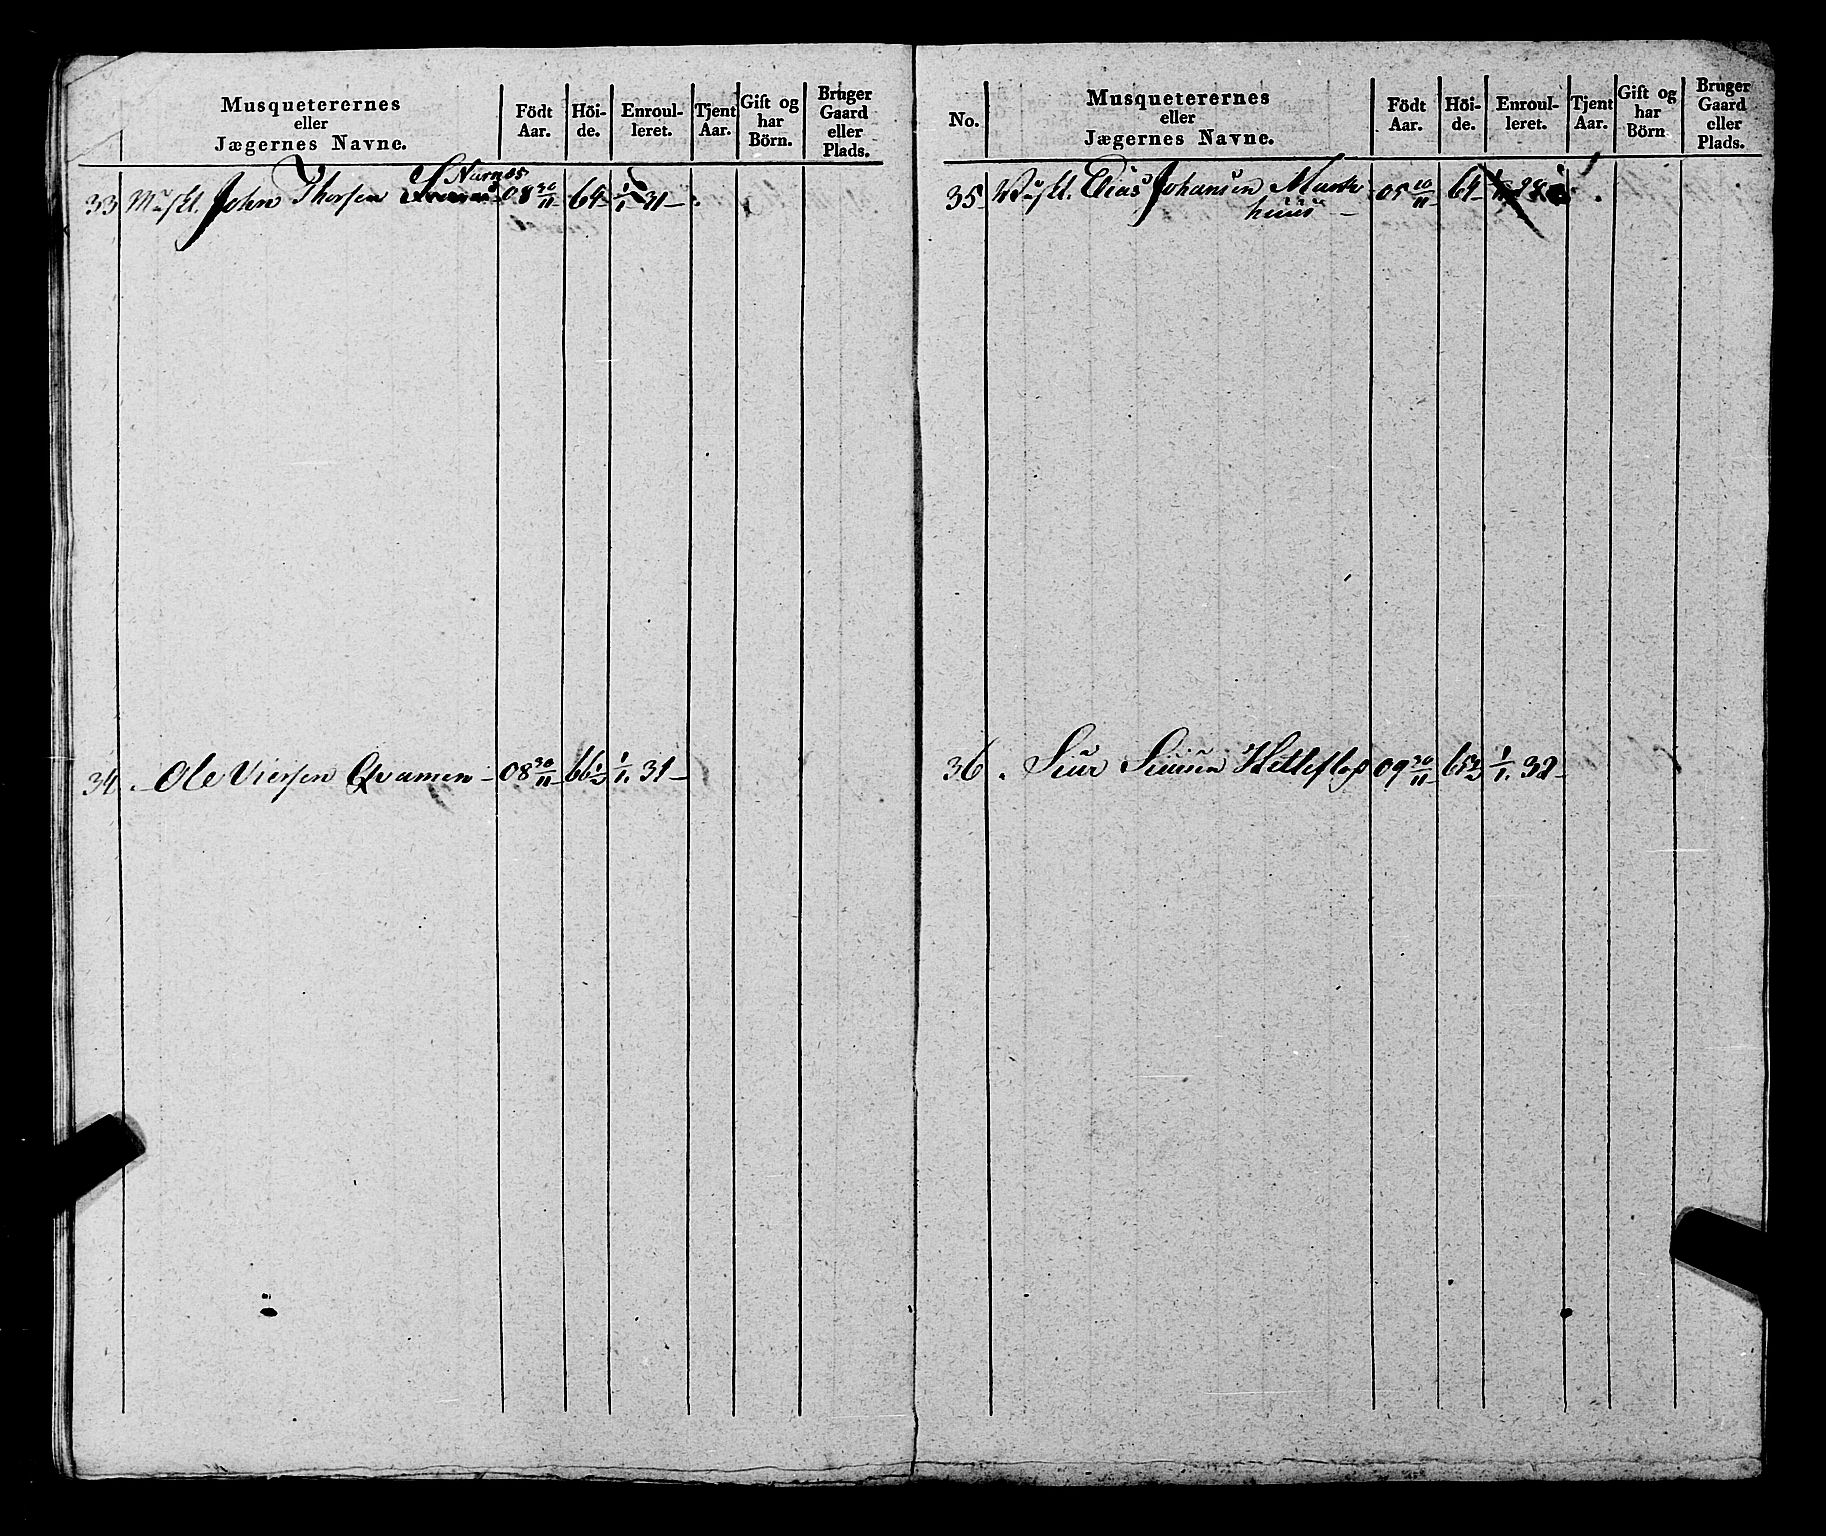 Musqueterernes
eller
Jægernes Navne.
Födt
Aar.
Höi-
de.
Enroul-
leret.
Tjent
Aar.
Gift og
har
Börn.
Bruger
Gaard
eller
Plads.
33 Muskt. John Thorsen 08 30/11 64 1/1 31
34 Ole Viersen Qvamen 08 30/11 66 1/2 1/1 31
No.
Musqueterernes
eller
Jægernes Navne.
Födt
Aar.
Höi-
de.
Enroul-
leret.
Tjent
Aar.
Gift og
har
Börn
Bruger
Gaard
eller
Plads.
35 Muskt. Elias Johansen Mark
huus
05 10/11 64 28
36 Siur Siursen 09 30/11 65 1/1 32